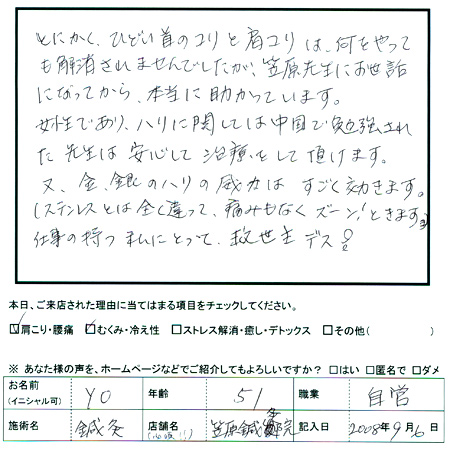 とにかく、ひどい首のコリと肩コリは、何をやって
も解消されませんでしたが、笠原先生にお世話
になってから、本当に助かっています。
女性であり、ハリに関しては中国で勉強され
た先生は安心して治療をして頂けます。
又、金、銀のハリの威力はすごく効きます。
(ステンレスとは全く違って、痛みもなくズーン!ときます)
仕事の持つ私にとって、救世主デス
本日、ご来店された理由に当てはまる項目をチェックしてください。
☑肩こり・腰痛 ☑むくみ・冷え性 □ストレス解消・癒し・デトックス □その他( )
※ あなた様の声を、ホームページなどでご紹介してもよろしいですか? □はい □匿名で □ダメ
お名前 (イニシャル可) YO 年齢 51 職業 自営
施術名 鍼灸 店舗名 (必須!!) 笠原鍼灸院 記入日 2008年9月6日